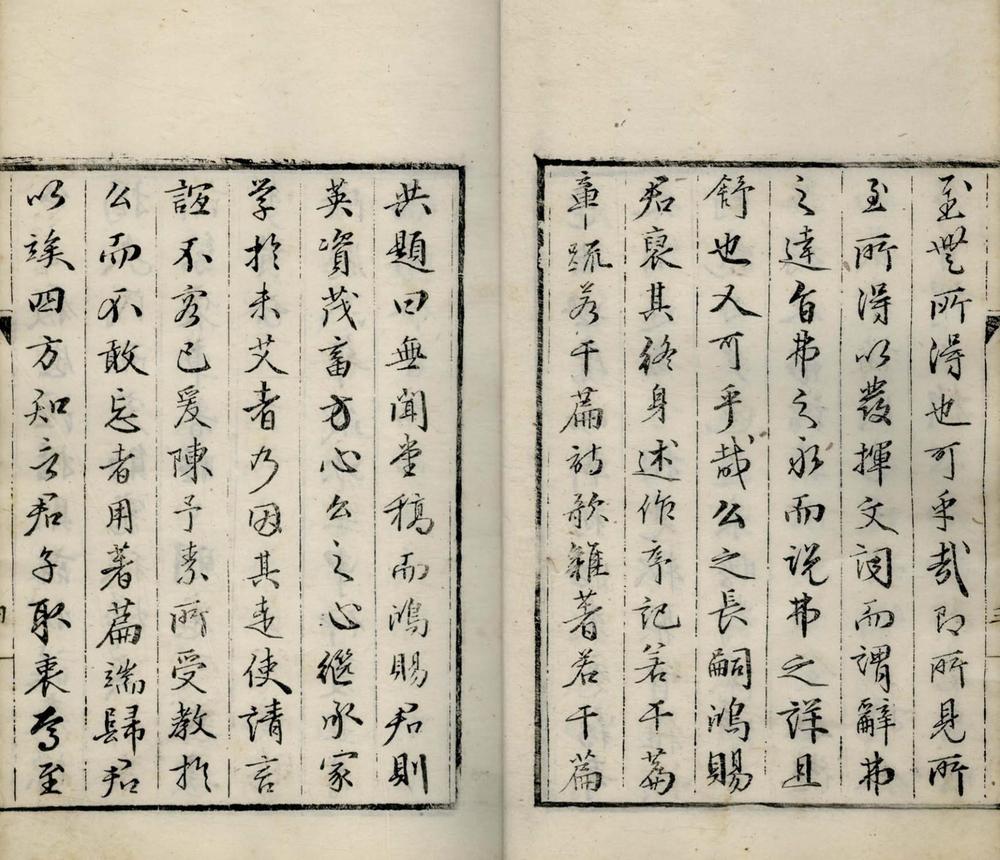 至無所得也可乎哉即所見所
至所得以發揮文詞而謂辭弗
之達旨弗之永而說弗之詳且
舒也又可乎哉公之長嗣鴻賜
君裒其終身述作序記若干篇
章疏若干篇詩歌雜著若干篇
共題曰無聞堂稿而鴻賜君則
英資茂畜方心公之心繼承家
学於未艾者乃因其走使請言
誼不容已爰陳予素所受教於
公而不敢忘者用著篇端歸君
以俟四方知言君子取衷焉至